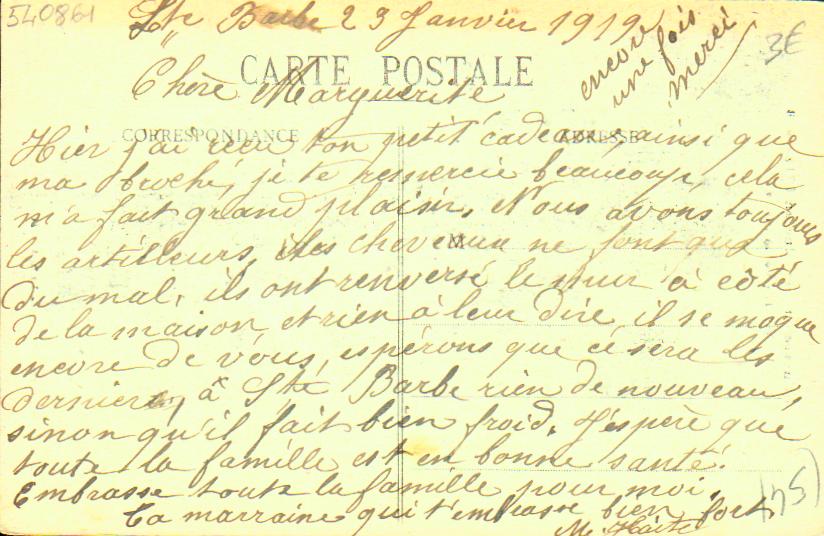 540861
Ste Barbe 23 Janvier 1919
encore
une fois
merci
3€
CARTE POSTALE
Chère Marguerite
CORRESPONDANCE
ADRESSE
Hier j'ai reçu ton petit cadeau, ainsi que
ma broche, je te remercie beaucoup, cela
m'a fait grand plaisir. Nous avons toujours
les artilleurs, les chevaux ne font que
M
du mal, ils ont renversé le mur à côté
de la maison, et rien à leur dire, il se moque
encore de vous, espérons que ce sera les
derniers, à Ste Barbe rien de nouveau,
sinon qu'il fait bien froid. J'espère que
toute la famille est en bonne santé.
Embrasse toute la famille pour moi.
Ta marraine qui t'embrasse bien fort
M.
(54)